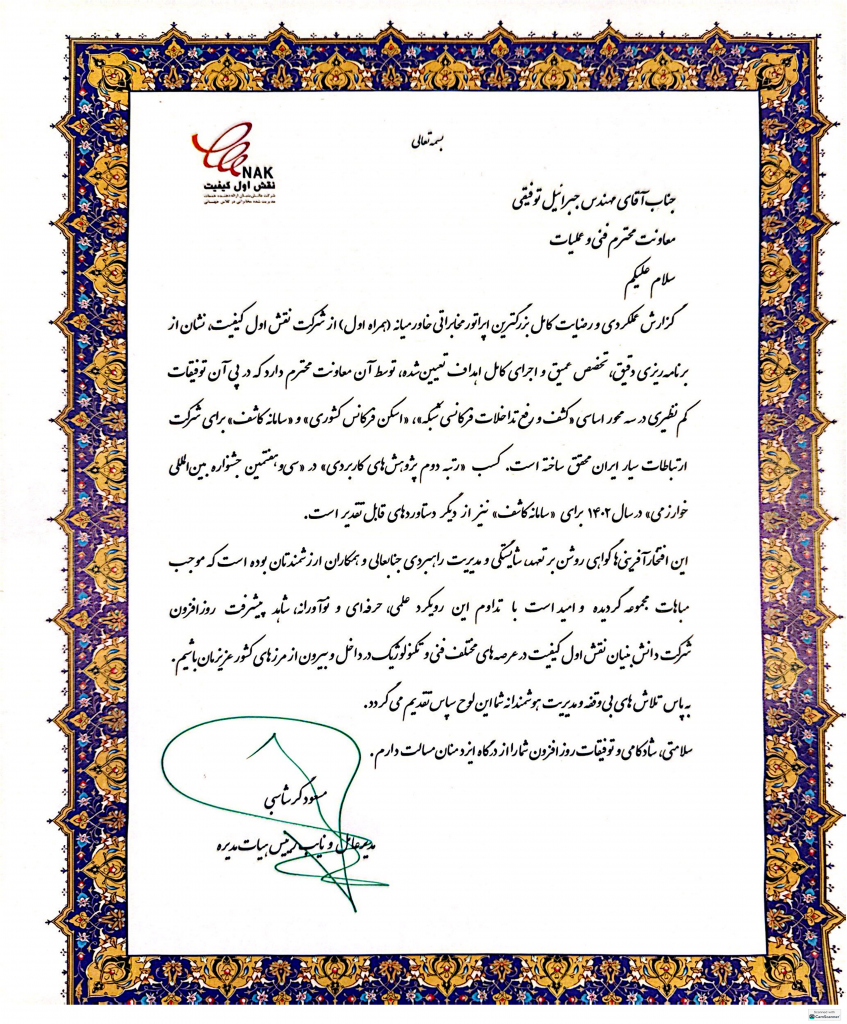 بسمه تعالی
NAK
نقش اول کیفیت
شرکت دانش‌بنیان ارائه دهنده خدمات
مدیریت شده مخابراتی در کلاس جهانی
جناب آقای مهندس جبرائیل توفیقی
معاونت محترم فنی و عملیات
سلام علیکم
گزارش عملکردی و رضایت کامل بزرگترین اپراتور مخابراتی خاورمیانه (همراه اول) از شرکت نقش اول کیفیت، نشان از
برنامه‌ریزی دقیق، تخصص عمیق و اجرای کامل اهداف تعیین‌شده، توسط آن معاونت محترم دارد که در پی آن توفیقات
کم نظیری در سه محور اساسی «کشف و رفع تداخلات فرکانسی شبکه»، «اسکن فرکانس کشوری» و «سامانه کاشف» برای شرکت
ارتباطات سیار ایران محقق ساخته است. کسب «رتبه دوم پژوهش‌های کاربردی» در «سی‌و‌هفتمین جشنواره بین‌المللی
خوارزمی» در سال ۱۴۰۲ برای «سامانه کاشف» نیز از دیگر دستاوردهای قابل تقدیر است.
این افتخارآفرینی‌ها گواهی روشن بر تعهد، شایستگی و مدیریت راهبردی جنابعالی و همکاران ارزشمندتان بوده است که موجب
مباهات مجموعه گردیده و امید است با تداوم این رویکرد علمی، حرفه‌ای و نوآورانه، شاهد پیشرفت روزافزون
شرکت دانش بنیان نقش اول کیفیت در عرصه های مختلف فنی و تکنولوژیک در داخل و بیرون از مرزهای کشور عزیزمان باشیم.
به پاس تلاش های بی وقفه و مدیریت هوشمندانه شما این لوح سپاس تقدیم می گردد.
سلامتی، شادکامی و توفیقات روزافزون شما را از درگاه ایزد منان مسالت دارم.
مسعود گرشاسبی
مدیرعامل و نایب رییس هیات مدیره
Scanned with
CamScanner